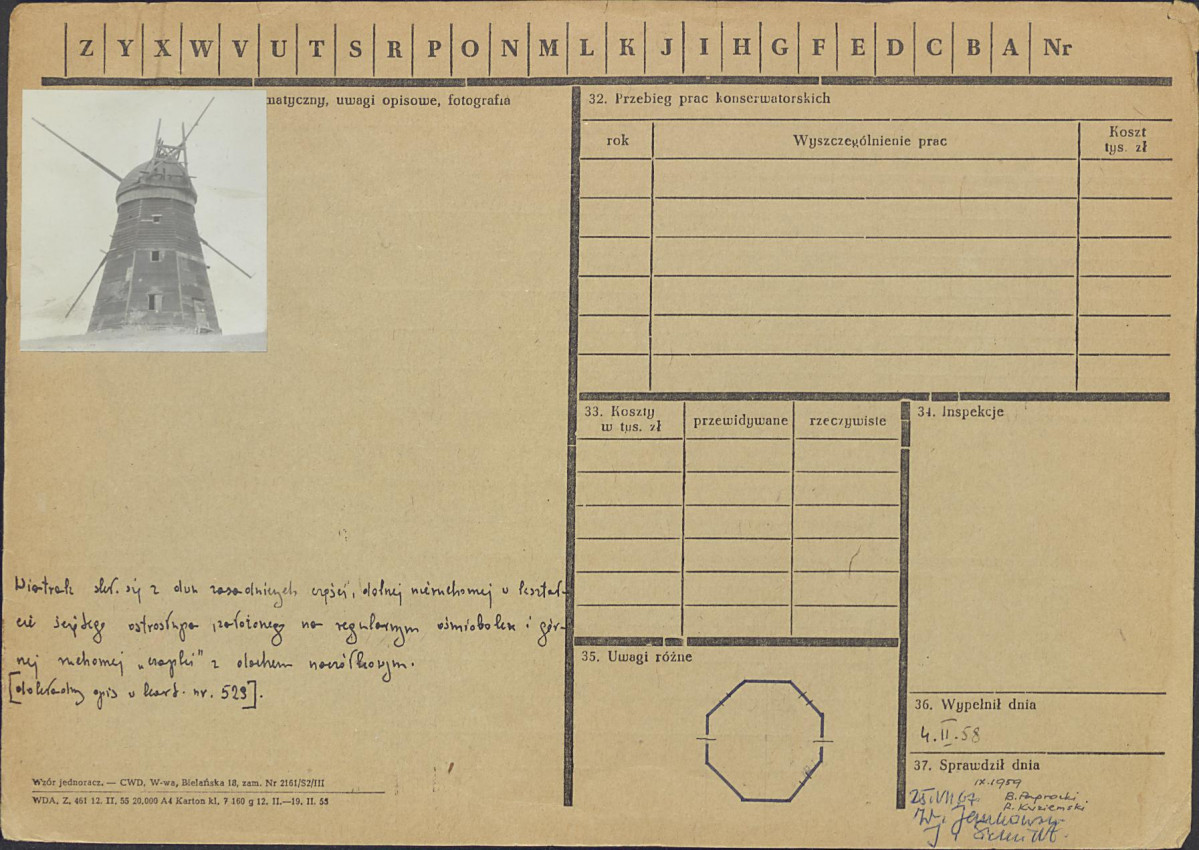 Z Y X W V U T S R P O N M L K J I H G F E D C B A Nr
matyczny, uwagi opisowe, fotografia
Wiatrak skł. się z dwu zasadniczych części, dolnej nieruchomej w kształ-
cie ściętego ostrosłupa założonego na regularnym ośmioboku i gór-
nej ruchomej „czapki" z dachem naczółkowym.
[dokładny opis w kart. nr. 523].
Wzór jednoracz. — CWD, W-wa, Bielańska 18, zam. Nr 2161/S2/III
WDA, Z. 461 12. II, 55 20.000 A4 Karton kl. 7 160 g 12. II.—19. II. 55
32. Przebieg prac konserwatorskich
rok Wyszczególnienie prac Koszt
tys. zł
33. Koszty
w tys. zł
przewidywane rzeczywiste
34. Inspekcje
35. Uwagi różne
36. Wypełnił dnia
4. II. 58
37. Sprawdził dnia
IX. 1959
25. VII 67 B. Paprocki
R. Kuziemski
W. Jankowski
J.